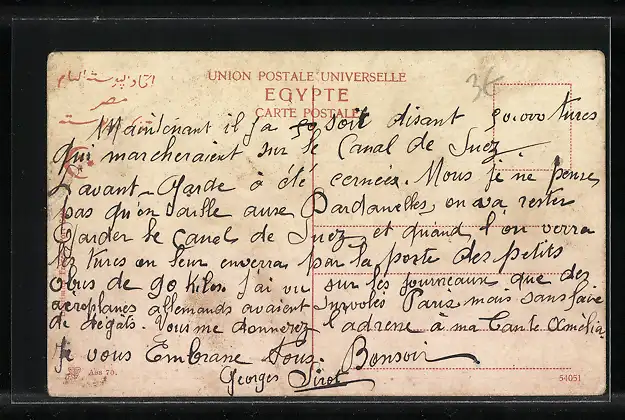 اتحاد البوستة العام
مصر
UNION POSTALE UNIVERSELLE
EGYPTE
CARTE POSTALE
3€
Maintenant il y a soit disant 50.000 tures
qui marcheraient sur le Canal de Suez.
L'avant-Garde a été cernée. Mous je ne pense
pas qu'on aille aux Dardanelles, on va rester
Garder le Canal de Suez et quand l'on verra
les tures on leur enverra par la porte des petits
obus de 90 Kilos. J'ai vu sur les journeaux que des
aéroplanes allemands avaient survolés Paris mais sans faire
de dégats. Vous me donnerez l'adresse à ma tante Amélie
Je vous Embrasse Tous. Bonsoir
Georges
Ass 75.
54051